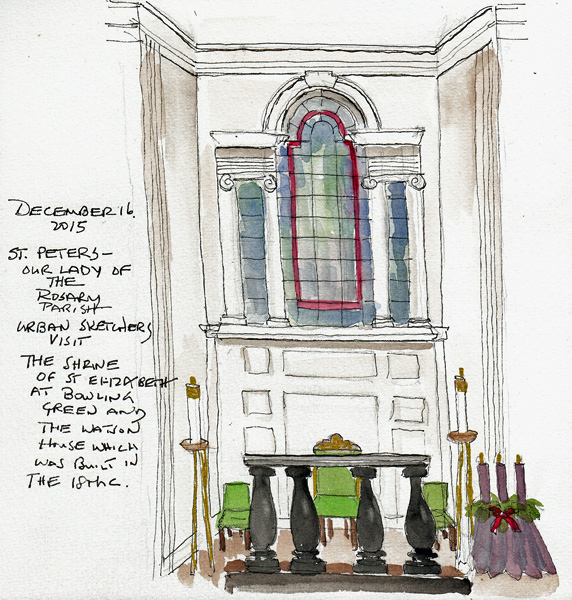 DECEMBER 16.
2015
ST. PETERS-
OUR LADY OF
THE
ROSARY
PARISH
URBAN SKETCHERS
VISIT
THE SHRINE
OF ST ELIZABETH
AT BOWLING
GREEN AND
THE WATSON
HOUSE WHICH
WAS BUILT IN
THE 18TH C.